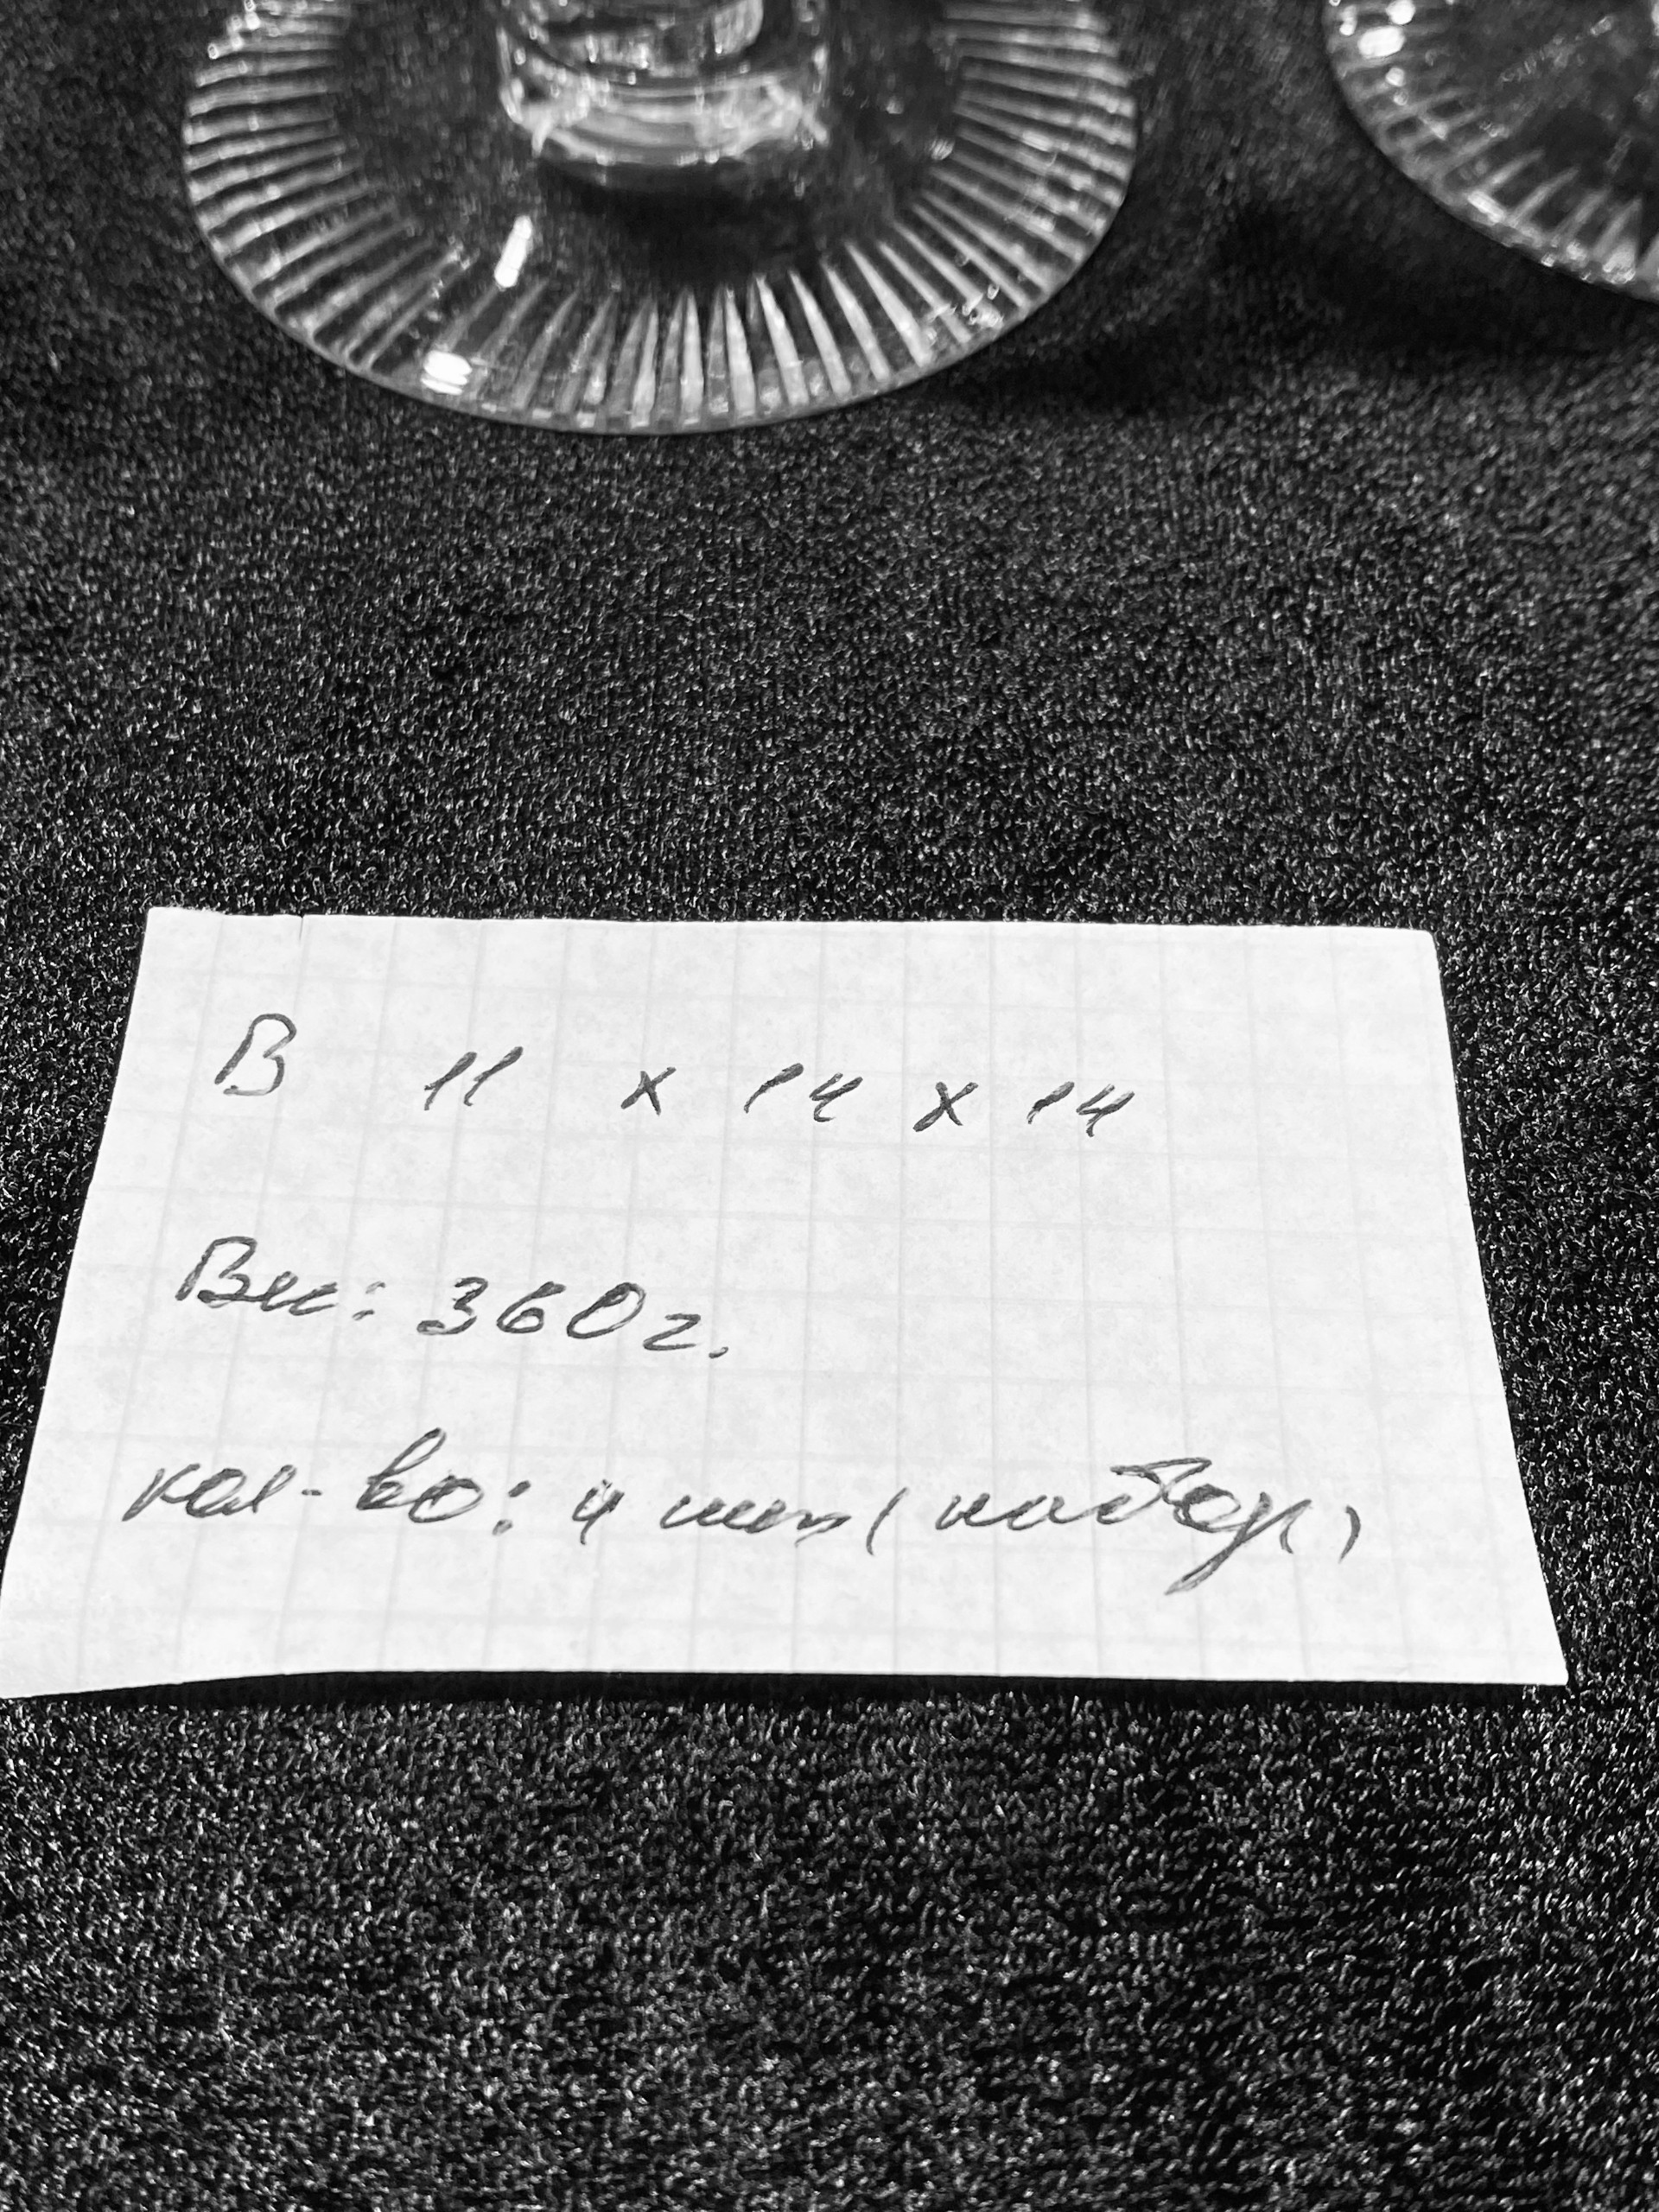 В 11 x 14 x 14
Вес: 360г.
кол-во: 4 шт (набор)